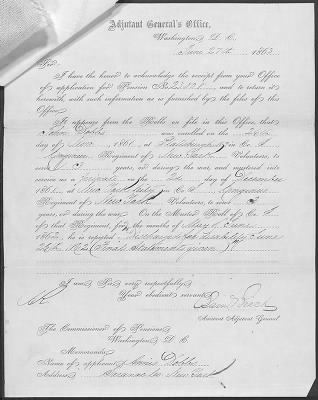 Adjutant General's Office,
Washington, D. C.
June 27th, 1863
Sir:
I have the honor to acknowledge the receipt from your Office
of application for Pension No. and to return it
herewith, with such information as is furnished by the files of this
Office.
It appears from the Rolls on file in this Office, that
John Dobbs was enrolled on the 20th
day of Nov. 1861 at Plattsburgh in Co.
Regiment of New York Volunteers, to
serve 3 years, or during the war, and mustered into
service as a Private on the day of December
1861, at New York City in Co.
Regiment of New York Volunteers, to serve 3
years, or during the war. On the Muster Roll of Co.
of that Regiment, for the months of May & June
1862, he is reported Discharged for disability June
26th 1862 (Final statements given)
I am, Sir, very respectfully,
Your obedient servant,
Assistant Adjutant General.
The Commissioner of Pensions,
Washington, D. C.
Memoranda:
Name of applicant, Dobbs
Address, Saranac New York